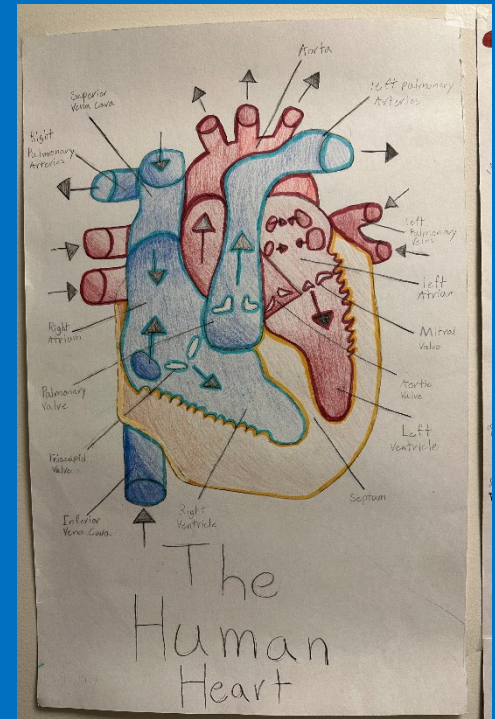 Aorta
Superior
Vena Cava
Left Pulmonary
Arteries
Right
Pulmonary
Arteries
Left
Pulmonary
Veins
Left
Atrium
Right
Atrium
Mitral
Valve
Pulmonary
Valve
Aortic
Valve
Left
Ventricle
Valve
Septum
Inferior
Vena Cava
Right
Ventricle
The
Human
Heart